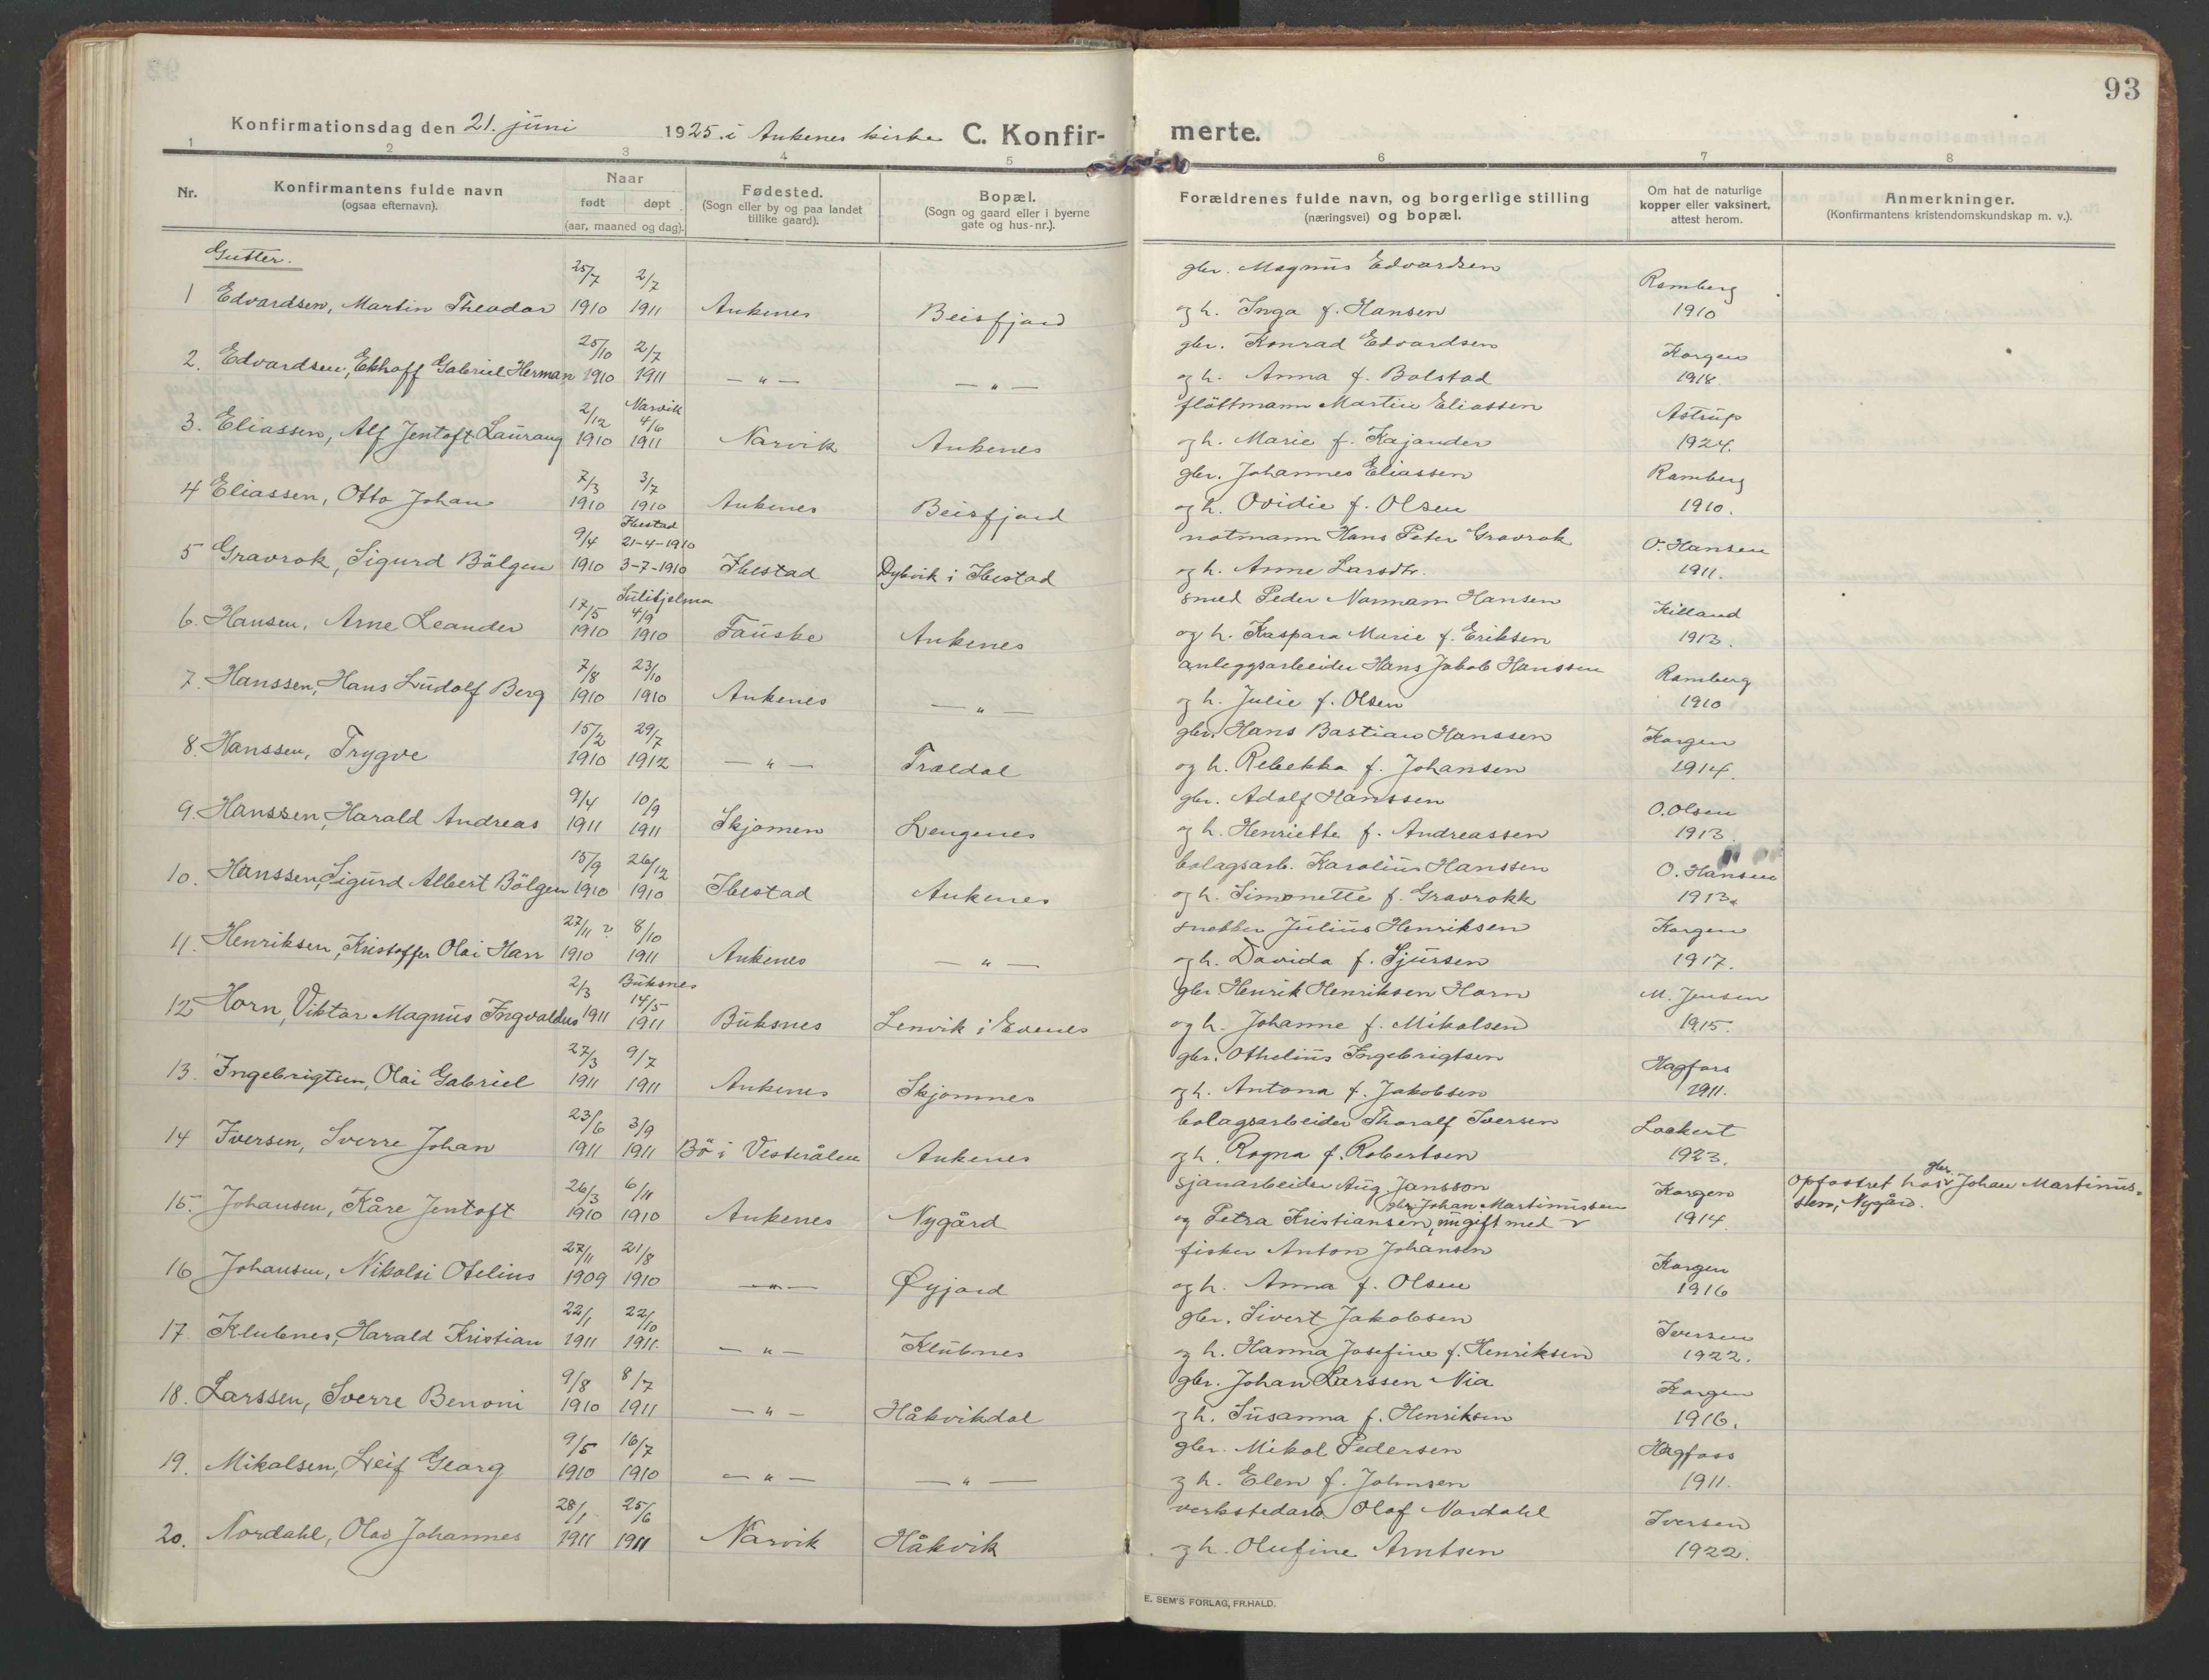 93
Konfirmationsdag den 21. juni 1925. i Ankenes kirke C. Konfir-merte.
1 2 3 4 5 6 7 8
Nr.
Konfirmantens fulde navn
(ogsaa efternavn).
Naar
født døpt
(aar, maaned og dag).
Fødested.
(Sogn eller by og paa landet
tillike gaard).
Bopæl.
(Sogn og gaard eller i byerne
gate og hus-nr.).
Forældrenes fulde navn, og borgerlige stilling
(næringsvei) og bopæl.
Om hat de naturlige
kopper eller vaksinert,
attest herom.
Anmerkninger.
(Konfirmantens kristendomskundskap m. v.).
Gutter.
25/7 2/7 gbr. Magnus Edvardsen Ramberg
1 Edvardsen, Martin Theodor 1910 1911 Ankenes Beisfjord og h. Inga f. Hansen 1910
25/10 2/7 gbr. Konrad Edvardsen Korgen
2. Edvardsen, Ekhoff Gabriel Herman 1910 1911 — " — — " — og h. Anna f. Bolstad 1918.
2/12 Narvik 4/6 flöttmann Martin Eliassen Astrup
3. Eliassen, Alf Jentoft Laurang 1910 1911 Narvik Ankenes og h. Marie f. Kajander 1924.
7/3 3/7 gbr. Johannes Eliassen Ramberg
4 Eliassen, Otto Johan 1910 1910 Ankenes Beisfjord og h. Ovidie f. Olsen 1910.
9/4 Ibestad 21-4-1910 notmann Hans Peter Gravrok O. Hansen
5 Gravrok, Sigurd Bölgen 1910 3-7-1910 Ibestad Dybvik i Ibestad og h. Anne Larsdtr. 1911.
17/5 Sulitjelma 4/9 smed Peder Normann Hansen Killand
6. Hansen, Arne Leander 1910 1910 Fauske Ankenes og h. Kaspara Marie f. Eriksen 1913.
7/8 23/10 anleggsarbeider Hans Jakob Hanssen Ramberg
7. Hanssen, Hans Ludolf Berg 1910 1910 Ankenes — " — og h. Julie f. Olsen 1910
15/2 29/7 gbr. Hans Bastian Hanssen Korgen
8. Hanssen, Trygve 1910 1912 — " — Trældal og h. Rebekka f. Johansen 1914.
9/4 10/9 gbr. Adolf Hanssen O. Olsen
9. Hanssen, Harald Andreas 1911 1911 Skjomen Lengenes og h. Henriette f. Andreassen 1913
15/9 26/12 bolagsarb. Karolius Hanssen O. Hansen
10. Hanssen, Sigurd Albert Bölgen 1910 1910 Ibestad Ankenes og h. Simonette f. Gravrokk 1913.
27/11 ? 8/10 snekker Julius Henriksen Korgen
11. Henriksen, Kristoffer Olai Harr 1910 1911 Ankenes — " — og h. Davida f. Sjursen 1917.
2/3 Buksnes 14/5 gbr. Henrik Henriksen Horn M. Jensen
12 Horn, Viktor Magnus Ingvaldus 1911 1911 Buksnes Lenvik i Evenes og h. Johanne f. Mikalsen 1915.
27/3 9/7 gbr. Othelius Ingebrigtsen Hagfors
13. Ingebrigtsen, Olai Gabriel 1911 1911 Ankenes Skjomnes og h. Antona f. Jakobsen 1911.
23/6 3/9 bolagsarbeider Thoralf Iversen Lockert
14 Iversen, Sverre Johan 1911 1911 Bö i Vesterålen Ankenes og h. Ragna f. Robertsen 1923.
26/3 6/11 sjauarbeider Aug. Jansson Korgen Opfostret hos gbr. Johan Martinus-
15. Johansen, Kåre Jentoft 1910 1910 Ankenes Nygård og Petra Kristiansen, nu gift med gbr. Johan Martinussen 1914. sen, Nygård.
27/11 21/8 fisker Anton Johansen Korgen
16 Johansen, Nikolai Otelius 1909 1910 — " — Øyjord og h. Anna f. Olsen 1916
22/1 22/10 gbr. Sivert Jakobsen Iversen
17. Klubnes, Harald Kristian 1911 1911. — " — Klubnes og h. Hanna Josefine f. Henriksen 1922.
9/8 8/7 gbr. Johan Larssen Nia Korgen
18. Larssen, Sverre Benoni 1910 1911 — " — Håkvikdal og h. Susanna f. Henriksen 1916.
9/5 16/7 gbr. Mikal Pedersen Hagfoss
19. Mikalsen, Leif Georg 1910 1910 — " — — " — og h. Elen f. Johnsen 1911.
28/1 25/6 verkstedarb. Olaf Nordahl Iversen
20. Nordahl, Olav Johannes 1911 1911 Narvik Håkvik og h. Olufine Arntsen 1922.
E. SEM'S FORLAG, FR.HALD.